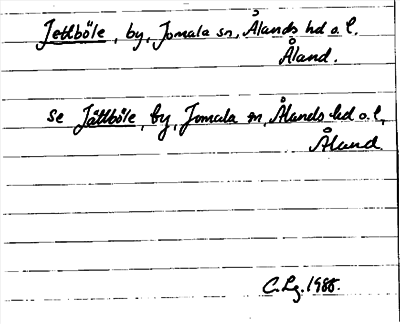 Jettböle, by, Jomala sn, Ålands hd o. l.
Åland.
se Jättböle, by, Jomala sn, Ålands hd o. l,
Åland
C. Lg. 1988.